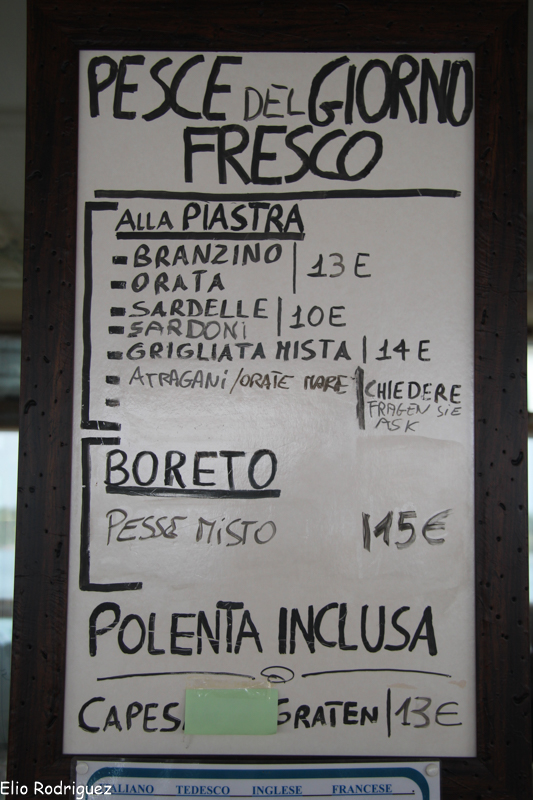 PESCE DEL GIORNO
FRESCO
ALLA PIASTRA
- BRANZINO
- ORATA
13 E
- SARDELLE
- SARDONI
10E
- GRIGLIATA MISTA | 14 E
- ATRAGANI/ORATE MARE
CHIEDERE
FRAGEN SIE
ASK
BORETO
PESSE MISTO 15€
POLENTA INCLUSA
GRATEN | 13€
ITALIANO TEDESCO INGLESE FRANCESE
Elio Rodriguez